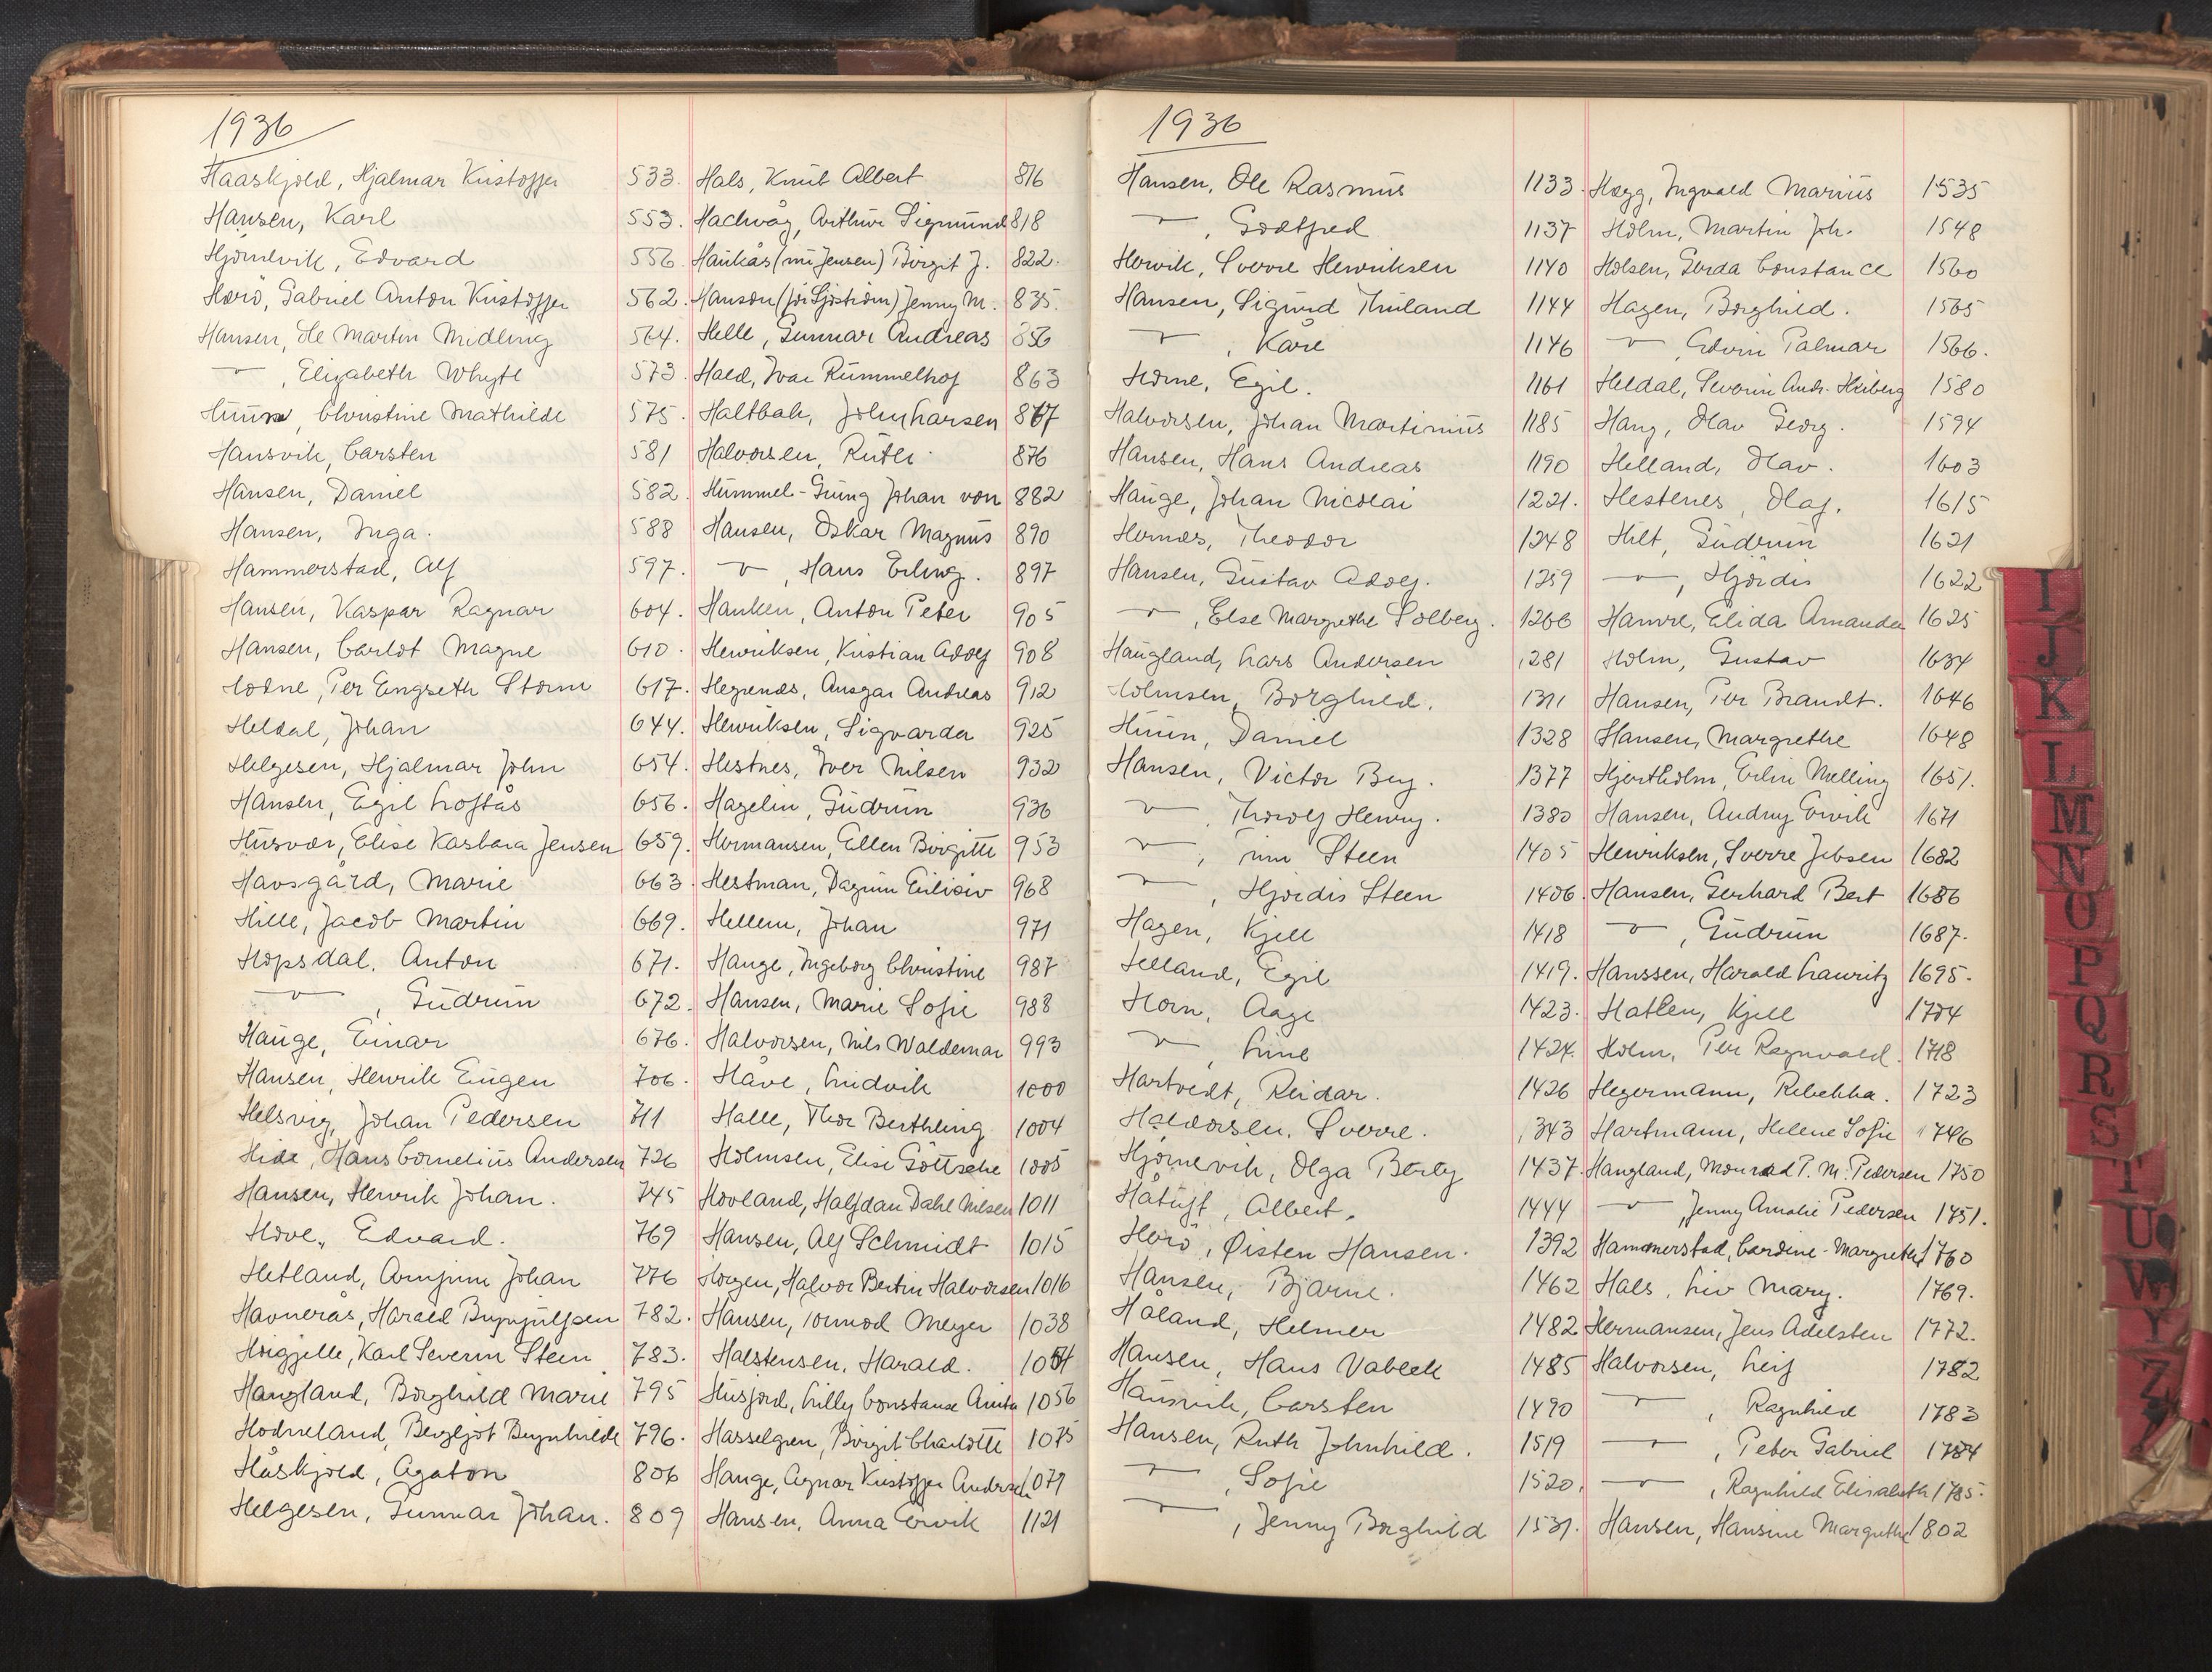 1936
Haaskjold, Hjalmar Kristoffer 533.
Hansen, Karl 553.
Hjörnevik, Edvard 556.
Herö, Gabriel Anton Kristoffer 562.
Hansen, Ole Martin Midling 564.
" , Elizabeth Whyte 573.
Huun, Christine Mathilde 575.
Hansvik, Carsten 581
Hansen, Daniel 582.
Hansen, Inga. 588
Hammerstad, Alf 597.
Hansen, Kaspar Ragnar 604.
Hansen, Carlot Magne 610.
Hodne, Per Engseth Storm 617.
Heldal, Johan 644.
Helgesen, Hjalmar John 654.
Hansen, Egil Loftås 656.
Husvær, Elise Karbara Jensen 659.
Havsgård, Marie 663.
Hille, Jacob Martin 669.
Hopsdal, Anton 671.
" , Gudrun 672.
Hauge, Einar 676.
Hansen, Henrik Eugen 706.
Helsvig, Johan Pedersen 711
Hide, Hans Cornelius Andersen 726
Hansen, Henrik Johan. 745
Hove, Edvard. 769
Hetland, Arnfinn Johan 776
Havnerås, Harald Brynjulfsen 782.
Hoigjelle, Karl Severin Steen 783.
Haugland, Borghild Marie 795
Hodneland, Bergljot Brynhilde 796.
Håskjold, Agaton 806
Helgesen, Gunnar Johan. 809
Hals, Knut Albert 816
Hachvåg, Arthur Sigmund 818
Haukås (nu Jensen) Birgit J. 822.
Hanson (för Sjöström) Jenny M. 835.
Helle, Gunnar Andreas 856
Hald, Ivar Rummelhof 863
Haltbak, John Larsen 867
Halvorsen, Ruth 876
Hummel-Gung Johan von 882
Hansen, Oskar Magnus 890
" , Hans Erling. 897
Hanken, Anton Peter 905
Henriksen, Kristian Adolf 908
Hegrenæs, Ansgar Andreas 912
Henriksen, Sigvarda 925
Hestnes, Iver Nilsen 932
Hagelin, Gudrun 936
Hermansen, Ellen Birgitte 953
Hestman, Dagunn Eilisiv 968
Hellem, Johan 971
Hauge, Ingeborg Christine 987
Hansen, Marie Sofie 988
Halvorsen, Nils Waldemar 993
Håve, Ludvik 1000
Halle, Thor Berthling 1004
Holmsen, Else Göttsche 1005
Hovland, Halfdan Dahl Nilsen 1011
Hansen, Alf Schmidt 1015
Horgen, Halvor Bertin Halvorsen 1016
Hansen, Tormod Meyer 1038
Halstensen, Harald.
Husjord, Lilly Constance Anita 1056
Hasselgren, Birgit Charlotte 1075
Hauge, Agnar Kristoffer Andersen 1079
Hansen, Anna Ervik 1121
1936
Hansen, Ole Rasmus 1133.
" , Godtfred 1137
Hervik, Sverre Henriksen 1140
Hansen, Sigurd Thuland 1144
" , Kåre 1146
Horne, Egil. 1161
Halvorsen, Johan Martinius 1185
Hansen, Hans Andreas 1190
Hauge, Johan Nicolai 1221.
Hernæs, Theodor 1248
Hansen, Gustav Adolf. 1259
" , Else Margrethe Solberg. 1266
Haugland, Lars Andersen 1281
Holmsen, Borghild. 1311
Huun, Daniel 1328
Hansen, Victor Berg. 1377
" , Thorolf Henry. 1380
" , Steen 1405
" , Hjördis Steen 1406.
Hagen, Kjell 1418
Helland, Egil 1419.
Horn, Aage 1423.
" , Line 1424.
Hartvedt, Reidar. 1426
Haldorsen, Sverre. 1343
Hjörnevik, Olga Berly 1437.
Håtuft, Albert. 1444
Herö, Øisten Hansen. 1392
Hansen, Bjarne. 1462
Håland, Helmer 1482
Hansen, Hans Vabeck 1485
Hausvik, Carsten 1490
Hansen, Ruth Johnhild. 1519
" , Sofie 1520.
" , Jenny Borghild 1531.
Hægg, Ingvald Marius 1535
Holm, Martin Joh. 1548
Holsen, Gerda Constance 1560
Hagen, Borghild. 1565
" Edvin Palmar 1566.
Heldal, Severin Andr. Heiberg 1580
Haug, Olav Georg. 1594
Helland, Olav. 1603
Hestenes, Olaf. 1615
Hilt, Gudrun 1621
" , Hjördis 1622
Hamre, Elida Amanda 1625
Holm, Gustav 1634
Hansen, Per Brandt. 1646
Hansen, Margrethe 1648
Hjortholm, Erlin Melling 1651.
Hansen, Audny Ervik 1671
Henriksen, Sverre Jebsen 1682
Hansen, Gerhard Bert 1686
" , Gudrun 1687.
Hanssen, Harald Lauritz 1695.
Hatlen, Kjell 1704
Holm, Per Ragnvald. 1718
Hegermann, Rebekka. 1723
Hartmann, Helene Sofie 1746
Haugland, Monrad P. M. Pedersen 1750
" , Jenny Amalie Pedersen 1751.
Hammerstad, Cardine-Margrethe 1760
Hals, Liv Mary. 1769.
Hermansen, Jens Adelsten 1772.
Halvorsen, Leif 1782
" , Ragnhild 1783
" , Peter Gabriel 1784
" , Ragnhild Elisabeth 1785.
Hansen, Hansine Margrethe 1802
I
J
K
L
M
N
O
P
Q
R
S
T
U
W
Y
Z